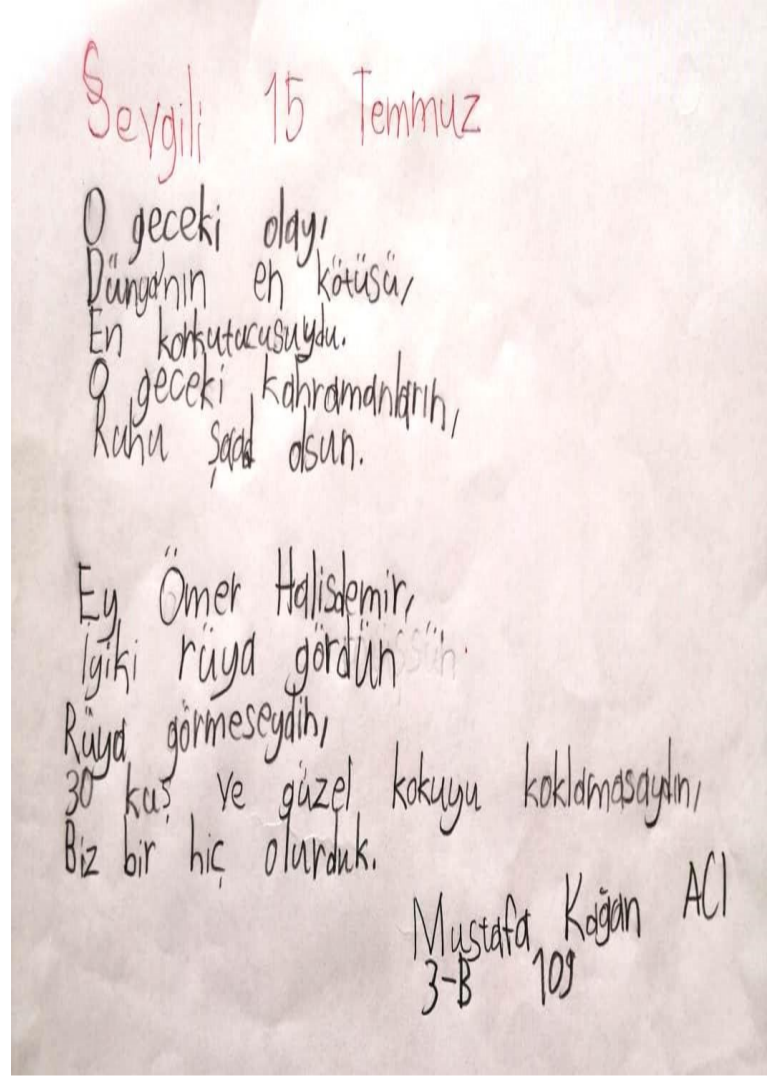 Sevgili 15 Temmuz
O geceki olay,
Dünya'nın en kötüsü,
En korkutucusuydu.
O geceki kahramanların,
Ruhu şaad olsun.
Ey Ömer Halisdemir,
İyiki rüya gördün
Rüya görmeseydin,
30 kuş ve güzel kokuyu koklamasaydın,
Biz bir hiç olurduk.
Mustafa Kağan ACI
3-B 109